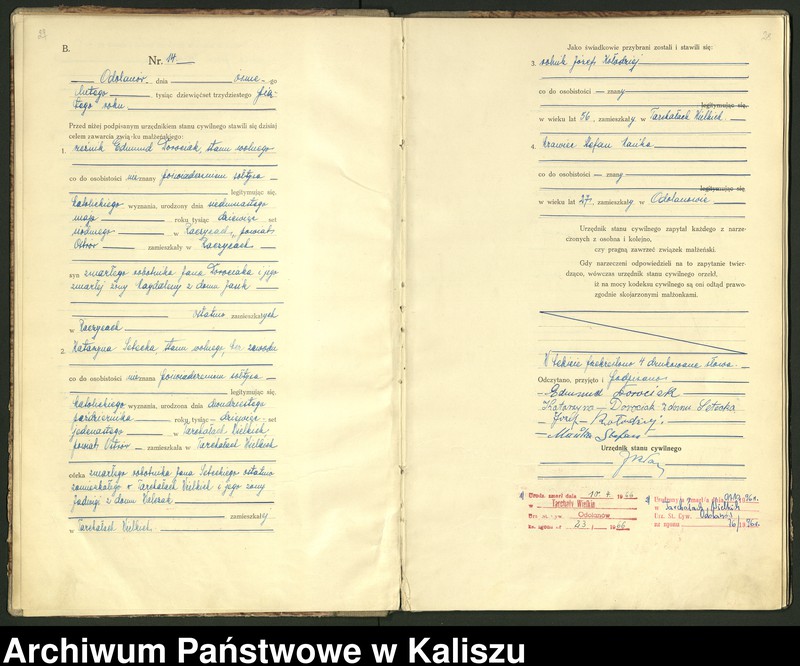 B.
Nr. 14
Odolanów, dnia ósme go
lutego tysiąc dziewięćset trzydziestego pią-
tego roku
Przed niżej podpisanym urzędnikiem stanu cywilnego stawili się dzisiaj
celem zawarcia związku małżeńskiego:
1. rzeźnik Edmund Dorociak, stanu wolnego
co do osobistości nieznany poświadczeniem sołtysa
legitymując się,
katolickiego wyznania, urodzony dnia siedemnastego
maja roku tysiąc dziewięć set
siódmego w powiat
Ostrów zamieszkały w
syn zmarłego robotnika Jana Dorociaka i jego
zmarłej żony Magdaleny z domu
ostatnio zamieszkałych
w
2. Katarzyna stanu wolnego, bez zawodu
co do osobistości nieznana poświadczeniem sołtysa
legitymując się,
katolickiego wyznania, urodzona dnia dwudziestego
października roku tysiąc dziewięć set
jedenastego w Tarchałach Wielkich
powiat Ostrów zamieszkała w Tarchałach Wielkich
córka zmarłego robotnika Jana ostatnio
zamieszkałego w Tarchałach Wielkich i jego żony
Jadwigi z domu
zamieszkałej
w Tarchałach Wielkich
Jako świadkowie przybrani zostali i stawili się:
3. rolnik Józef Kołodziej
co do osobistości — znany
legitymując się,
w wieku lat 36, zamieszkały w Tarchałach Wielkich
4. krawiec Stefan
co do osobistości — znany
legitymując się,
w wieku lat 27, zamieszkały w Odolanowie
Urzędnik stanu cywilnego zapytał każdego z narze-
czonych z osobna i kolejno,
czy pragną zawrzeć związek małżeński.
Gdy narzeczeni odpowiedzieli na to zapytanie twier-
dząco, wówczas urzędnik stanu cywilnego orzekł,
iż na mocy kodeksu cywilnego są oni odtąd prawo-
zgodnie skojarzonymi małżonkami.
W tekście przekreślono 4 drukowane słowa.
Odczytano, przyjęto i podpisano
Edmund Dorociak
Katarzyna Dorociak z domu
Józef Kołodziej
Stefan
Urzędnik stanu cywilnego
zmarł dnia 10. 7. 1966
w Tarchały Wielkie
Odolanów
23 / 66
w Tarchałach Wielkich
Urz. St. Cyw. Odolanów
Archiwum Państwowe w Kaliszu